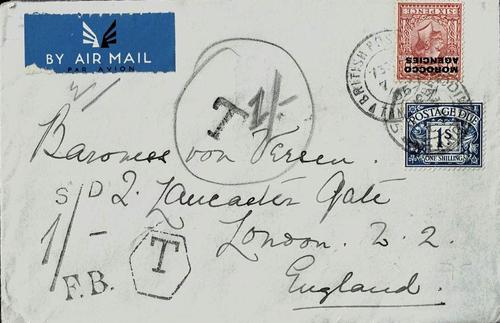 BY AIR MAIL
PAR AVION
SIXPENCE
MOROCCO
AGENCIES
BRITISH POS
T 1/-
POSTAGE DUE
1S
ONE SHILLING
Baroness von Versen.
S D 2. Lancaster Gate
1/-
London.
T
F.B.
England.